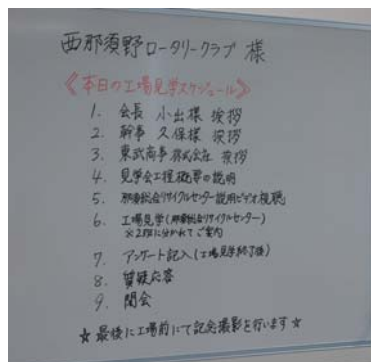 西那須野ロータリークラブ 様
《本日の工場見学スケジュール》
1. 会長 小出様 挨拶
2. 幹事 久保様 挨拶
3. 東武商事株式会社 挨拶
4. 見学会工程概要の説明
5. 那須総合リサイクルセンター説明ビデオ視聴
6. 工場見学(那須総合リサイクルセンター)
※2班に分かれてご案内
7. アンケート記入(工場見学終了後)
8. 質疑応答
9. 閉会
☆最後に工場前にて記念撮影を行います☆